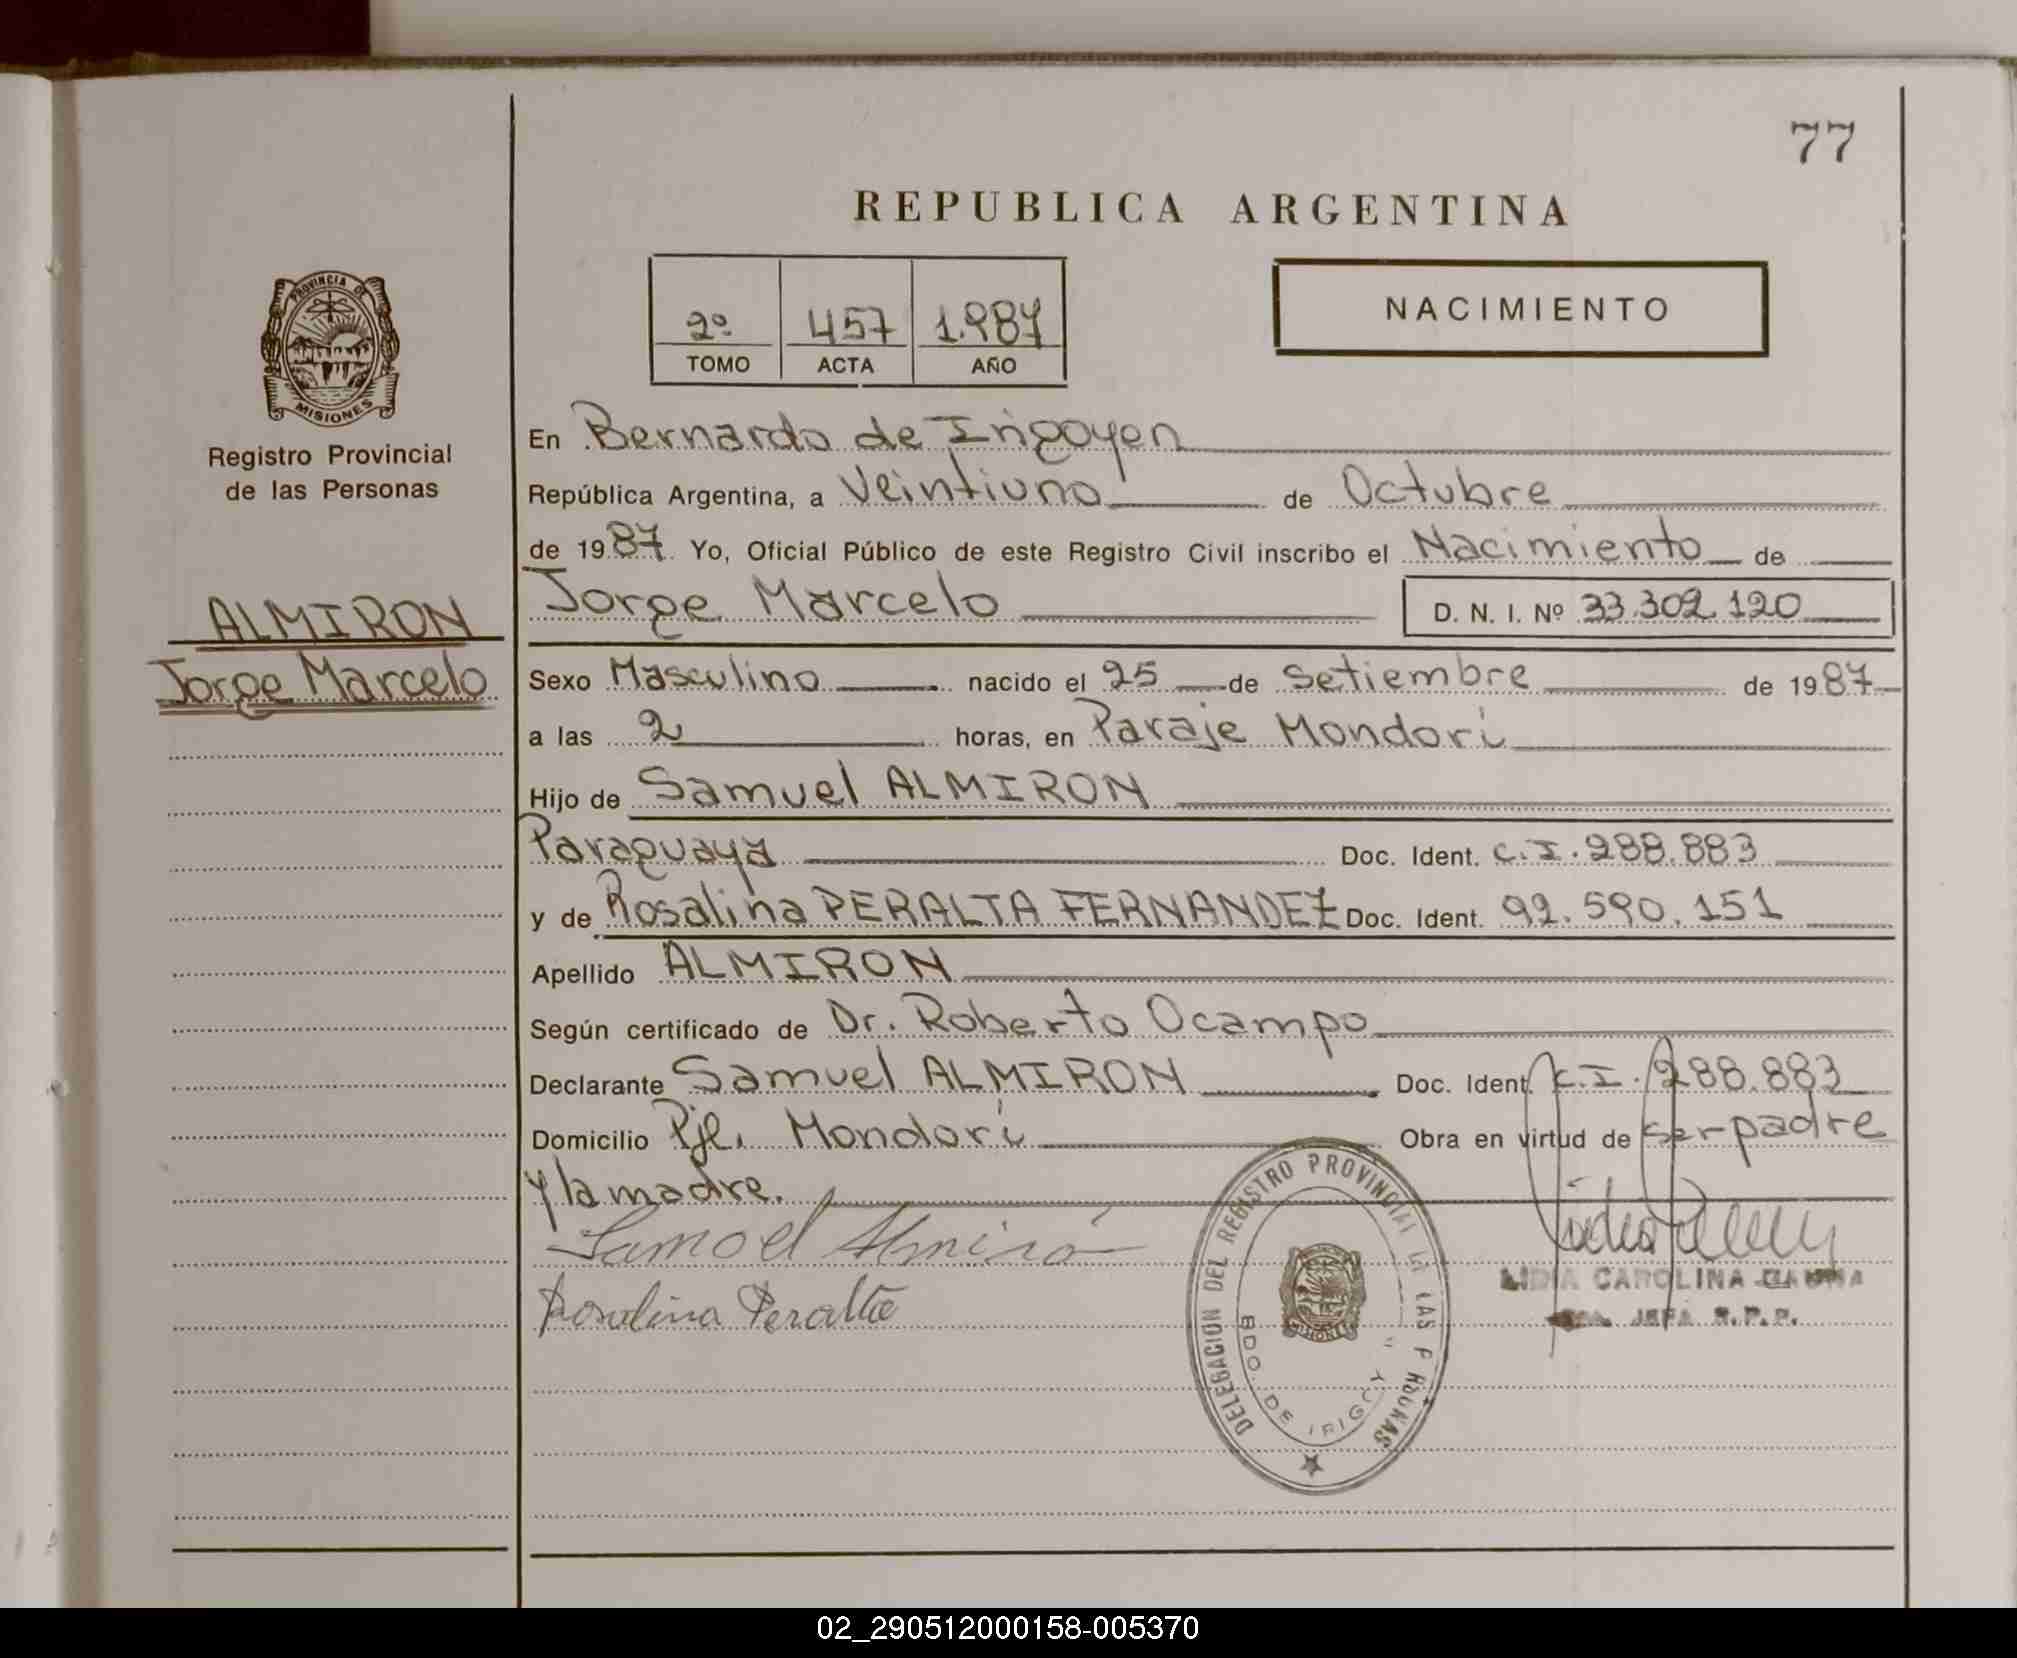 77
REPUBLICA ARGENTINA
2º 457 1.987
TOMO ACTA AÑO
NACIMIENTO
PROVINCIA DE
MISIONES
Registro Provincial
de las Personas
ALMIRON
Jorge Marcelo
En Bernardo de Irigoyen
República Argentina, a Veintiuno de Octubre
de 1987 Yo, Oficial Público de este Registro Civil inscribo el Nacimiento de
Jorge Marcelo D. N. I. Nº 33.302.120
Sexo Masculino nacido el 25 de Setiembre de 1987
a las 2 horas, en Paraje Mondorí
Hijo de Samuel ALMIRON
Paraguaya Doc. Ident. C.I. 288.883
y de Rosalina PERALTA FERNANDEZ Doc. Ident. 92.590.151
Apellido ALMIRON
Según certificado de Dr. Roberto Ocampo
Declarante Samuel ALMIRON Doc. Ident. C.I. 288.883
Domicilio Pje. Mondorí Obra en virtud de ser padre
y la madre.
Samoel Almiró
Rosalina Peralta
DELEGACION DEL REGISTRO PROVINCIAL
BDO. DE IRIGOY
MISIONES
LIDIA CAROLINA
JEFA R.P.P.
02_290512000158-005370